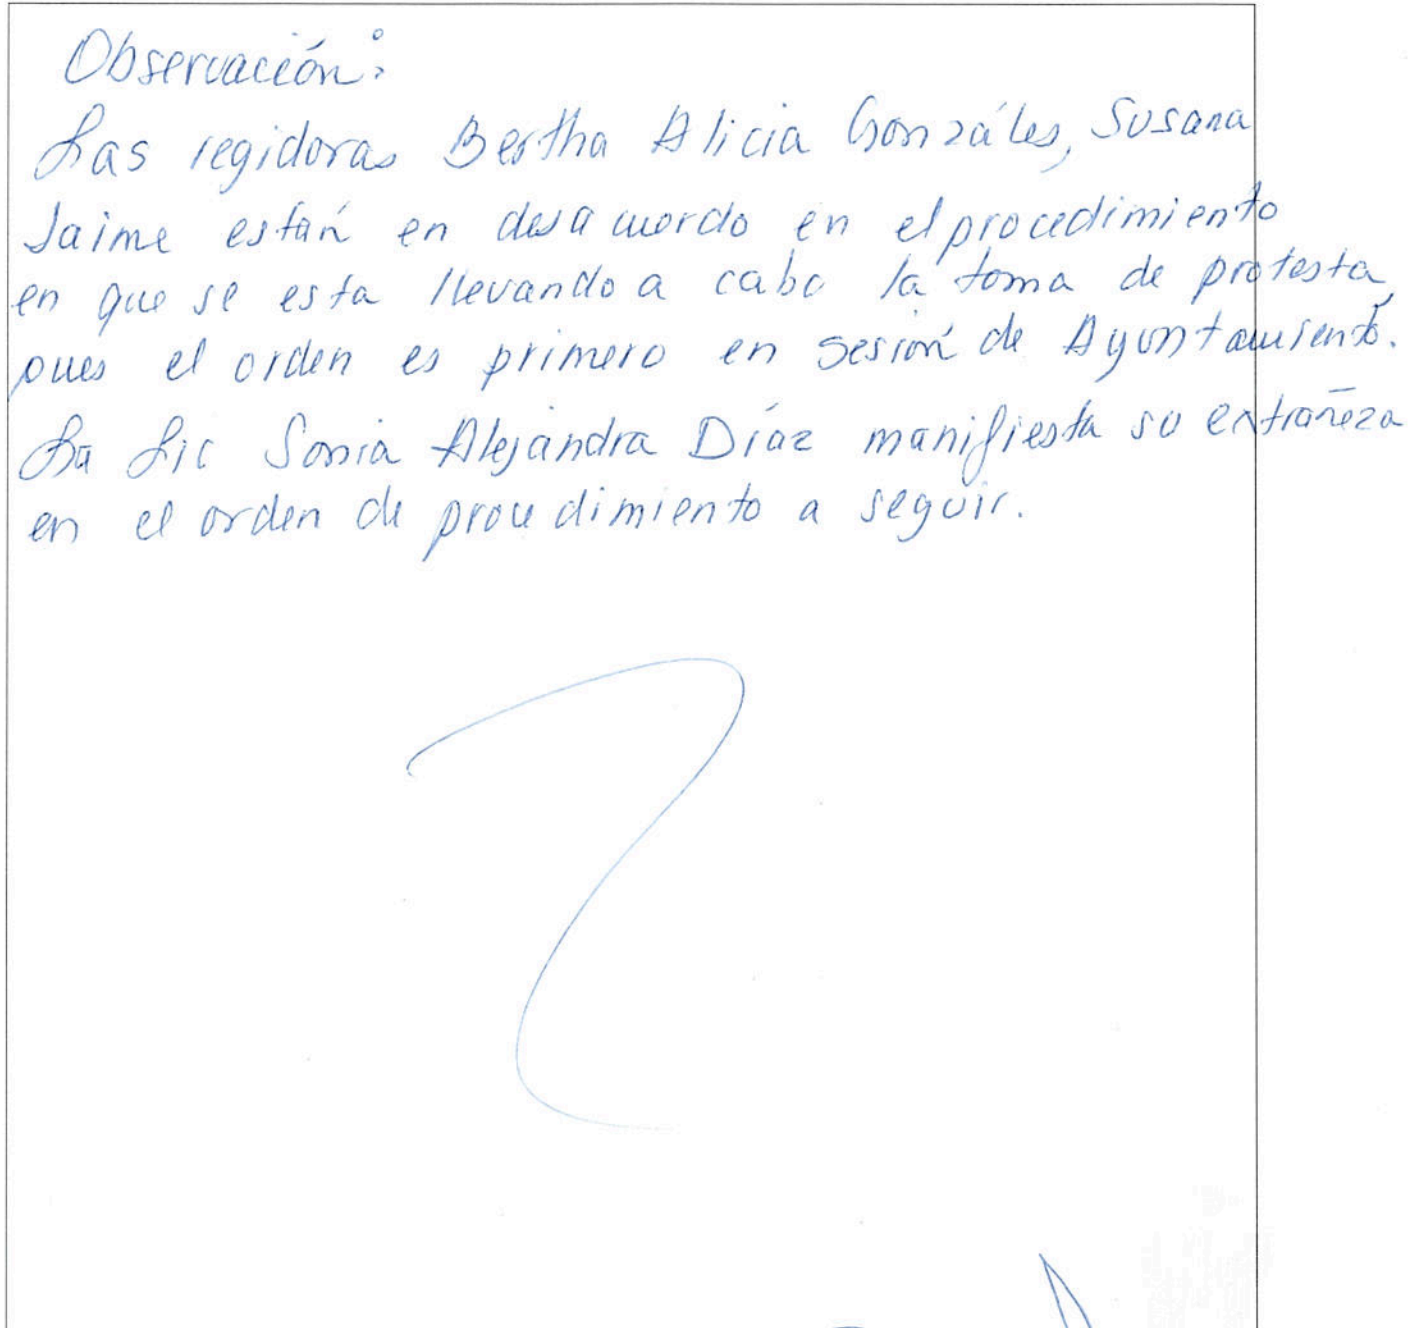 Observación:
Las regidoras Bertha Alicia Gonzáles, Susana
Jaime están en desacuerdo en el procedimiento
en que se esta llevando a cabo la toma de protesta,
pues el orden es primero en sesión de Ayuntamiento.
La Lic Sonia Alejandra Díaz manifiesta su extrañeza
en el orden de procedimiento a seguir.